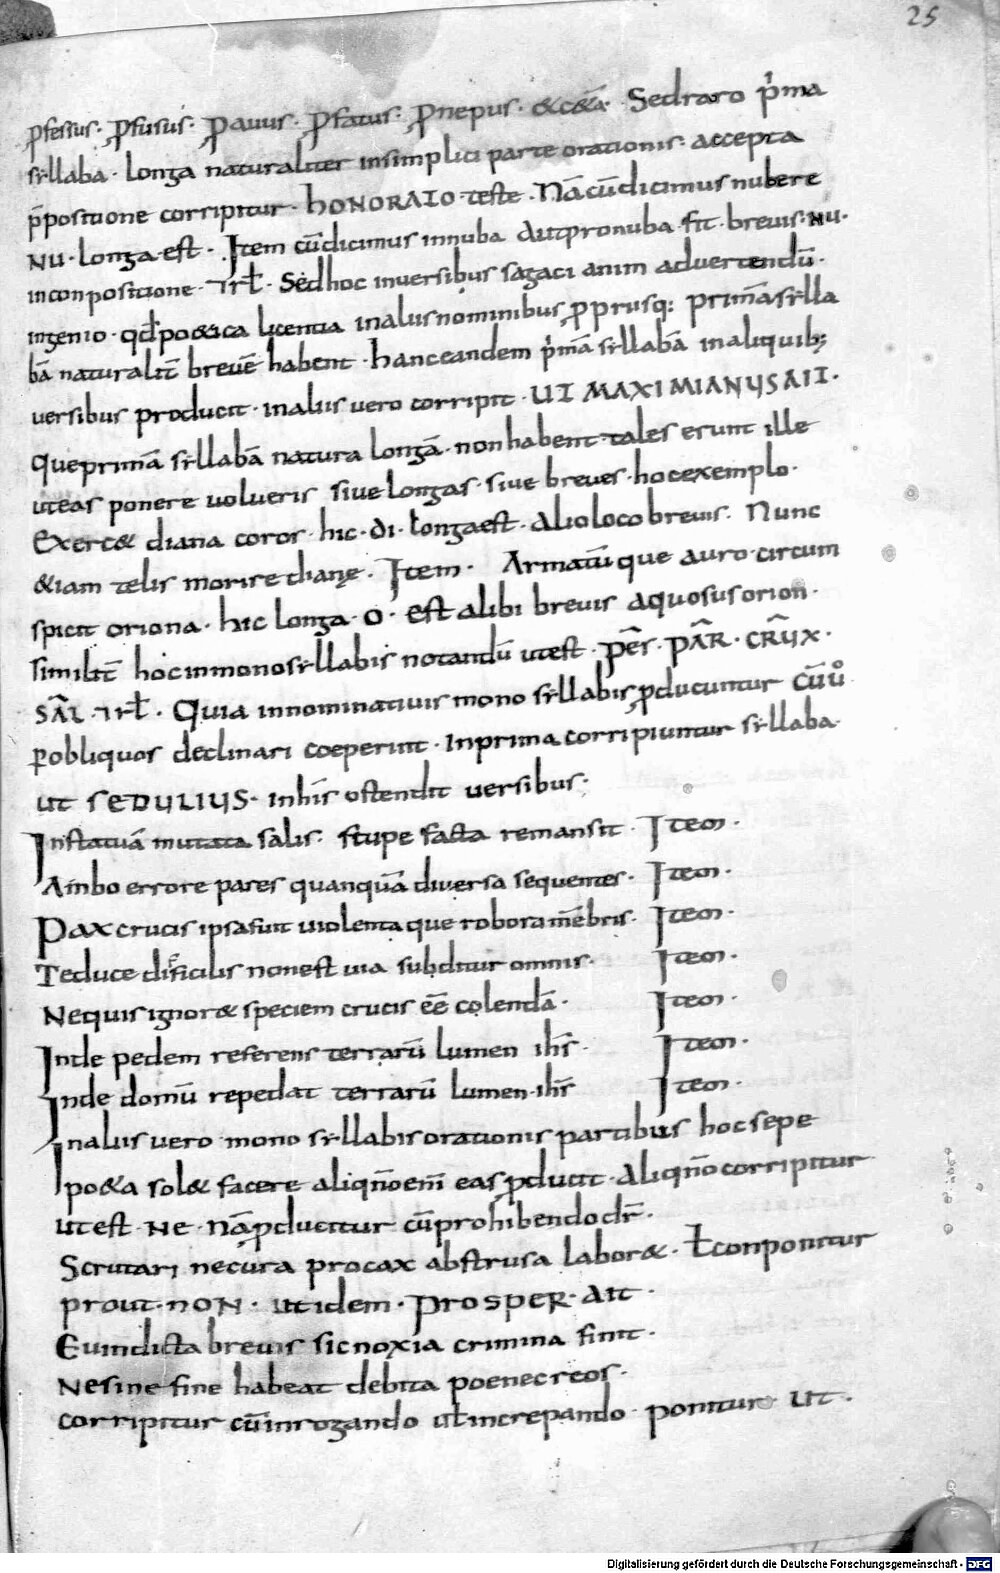 25
ꝓfessus· ꝓfusus· ꝓauus· ꝓfatus· ꝓnepus· &c&ā· Sedraro p̍ma
sẏllaba· longa naturaliter insimplici parte orationis· accepta
p̄positione corripitur· hONORAIO· teste· Nācūdicimus nubere
NU· longa· est·· Item cūdicimus innuba Autpronuba· fit· breuis· NU·
inconpositione· rł· Sedhoc inuersibus sagaci anim aduertendū·
ingenio· qđpo&ica licentia inaliisnominibus ꝓprusq; primāsẏlla
bā naturalit̄ breuē habent· hanceandem p̍mā sẏllabā inaliquib;
uersibus producit· inaliis uero corripit· UI MAXIMIANUS AII·
queprimā sẏllabā natura longā· nonhabent· tales erunt ille
uteas ponere uolueris siue longas· siue breues· hocexemplo·
Exerc& diana coros· hic· di· longaest· Alioloco breuis· Nunc
&iam telis morire dianę· Item· Armatū que auro· circum
spicit oriona· hic longa· O· est alibi breuis aquosus orion·
similit̄ hocinmonosẏllabis notandū utest· pēs· PĀR· CRŪX·
SĀL· rł· Quia innominatiuis mono sẏllabis ꝓducuntur cūuͦ
ꝑobliquos declinari coeperint· Inprima corripiuntur sẏllaba·
ut SEDULIUS· inhis ostendit uersibus·
Instatuā mutata salis· stupe facta remansit· Item·
Ambo errore pares quanquā diuersa sequentes· Item·
Pax crucis ipsa fuit uiolenta que robora mēbris· Item·
Teduce difficilis nonest uia subditur omnis· Item·
Nequis ignor& speciem crucis eē colendā· Item·
Inde pedem referens terrarū lumen ihs̄· Item·
Inde domū repedat terrarū lumen· ihs̄ Item·
Inaliis uero mono sẏllabis orationis partibus hoc sepe
po&a sol& facere aliqn̄oem̄ eas ꝓducit· aliqn̄o corripitur
utest· NE· Nā ꝓducitur cūprohibendo dr̄·
Scrutari necura procax abstrusa labor&· ł conponitur
prout· NON· ut idem· PROSPER· Ait·
Euindicta breuis sic noxia crimina finit·
Nesine fine habeat debita poenecreos·
corripitur cūinrogando uł increpando· ponitur ut·
Digitalisierung gefördert durch die Deutsche Forschungsgemeinschaft - DFG